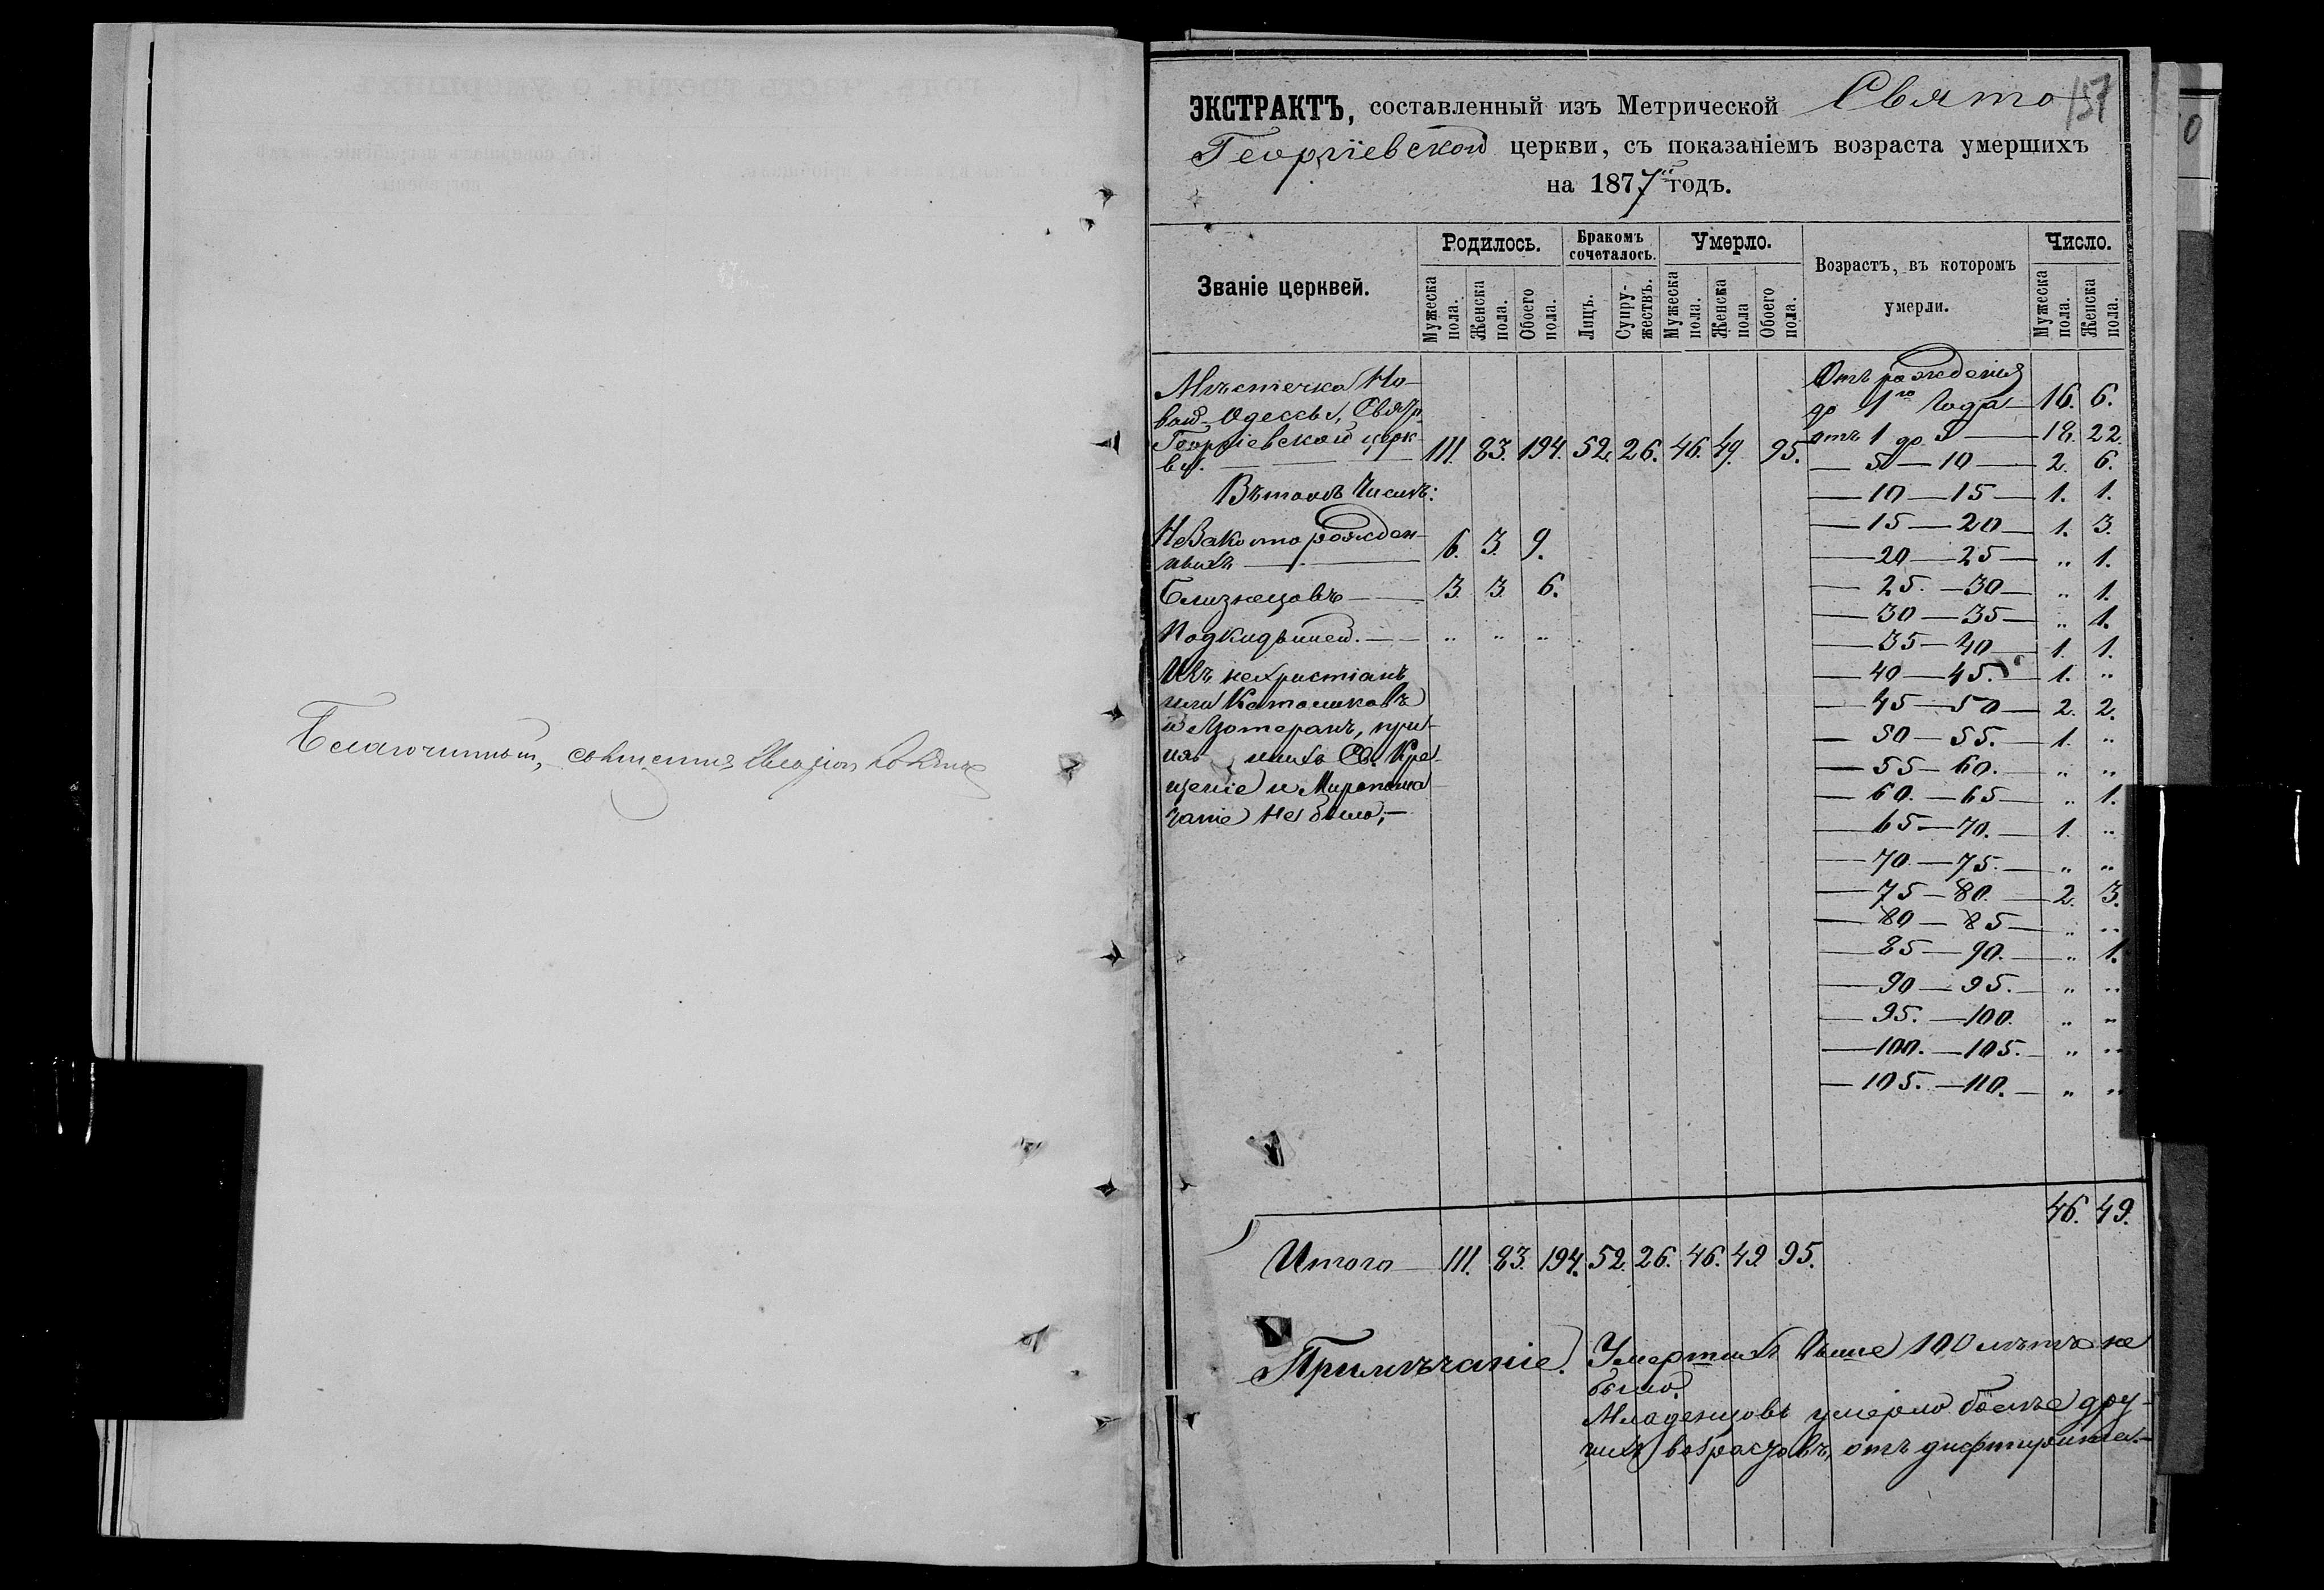 Благочинный, священник
157
ЭКСТРАКТЪ, составленный изъ Метрической Свято
Георгіевской церкви, съ показаніемъ возраста умершихъ
на 1877й годъ.
Званіе церквей.
Родилось.
Бракомъ сочеталось.
Умерло.
Возрастъ, въ которомъ умерли.
Число.
Мужеска пола.
Женска пола.
Обоего пола.
Лицъ.
Супружествъ.
Мужеска пола.
Женска пола
Обоего пола.
Мужеска пола.
Женска пола.
Мѣстечка Но-
вой-Одессы, Свято
Георгіевской церк-
ви. — 111. 83. 194. 52. 26. 46. 49. 95.
Въ томъ числѣ:
Незаконнорожден-
ныхъ — 6. 3. 9.
Близнецовъ — 3. 3. 6.
Подкидышей. — „ „ „
Изъ нехристіанъ
или Католиковъ
и Лютеранъ, при-
няв шихъ Св. Кре-
щеніе и Миропома
заніе не было; —
Отъ рожденія
до 1го года — 16. 6.
отъ 1 до 5 — 18. 22.
— 5 — 10 — 2. 6.
— 10 — 15 — 1. 1.
— 15 — 20 — 1. 3.
— 20 — 25 — „ 1.
— 25. — 30 — „ 1.
— 30 — 35 — „ 1.
— 35 — 40 — 1. 1.
— 40 — 45. — 1. „
— 45 — 50 — 2. 2.
— 50 — 55. — 1. „
— 55 — 60. — „ „
— 60. — 65 — „ 1.
— 65 — 70. — 1. „
— 70 — 75. — „ „
— 75 — 80. — 2. 3.
— 80 — 85 — „ „
— 85 — 90. — „ 1.
— 90 — 95. — „ „
— 95. — 100. „ „
— 100. — 105. — „ „
— 105. — 110. — „ „
46. 49.
Итого — 111. 83. 194. 52. 26. 46. 49. 95.
Примѣчаніе. Умершихъ выше 100 лѣтъ не
было.
Младенцовъ умерло болѣе дру-
гихъ возрастовъ, отъ дифтирита. —
0